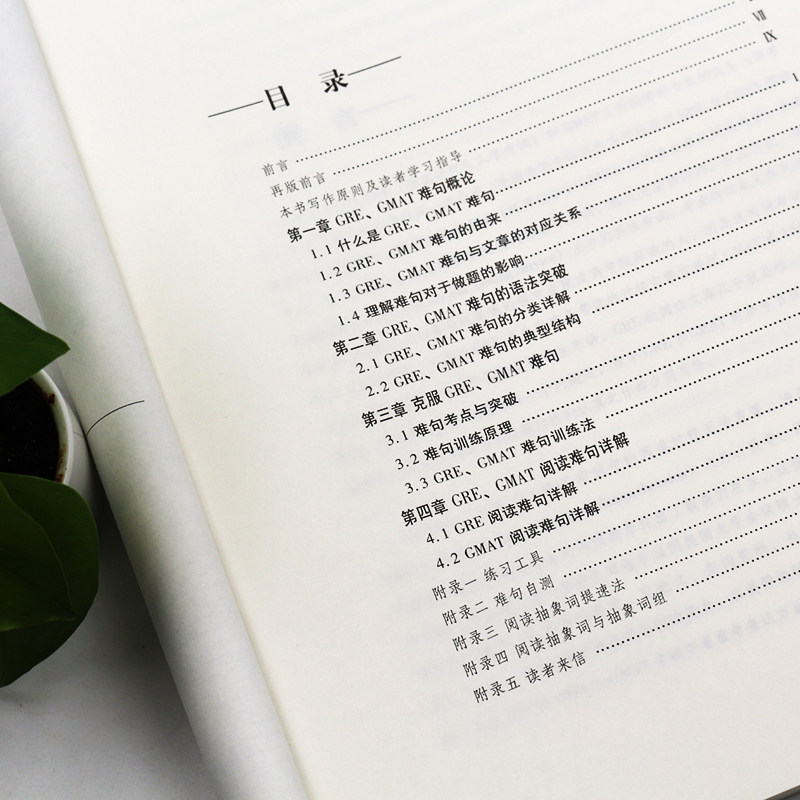 目 录
前言
再版前言 Ⅶ
本书写作原则及读者学习指导 Ⅸ
第一章 GRE、GMAT 难句概论
1.1 什么是 GRE、GMAT 难句 1
1.2 GRE、GMAT 难句的由来
1.3 GRE、GMAT 难句与文章的对应关系
1.4 理解难句对于做题的影响
第二章 GRE、GMAT 难句的语法突破
2.1 GRE、GMAT 难句的分类详解
2.2 GRE、GMAT 难句的典型结构
第三章 克服 GRE、GMAT 难句
3.1 难句考点与突破
3.2 难句训练原理
3.3 GRE、GMAT 难句训练法
第四章 GRE、GMAT 阅读难句详解
4.1 GRE 阅读难句详解
4.2 GMAT 阅读难句详解
附录一 练习工具
附录二 难句自测
附录三 阅读抽象词提速法
附录四 阅读抽象词与抽象词组
附录五 读者来信